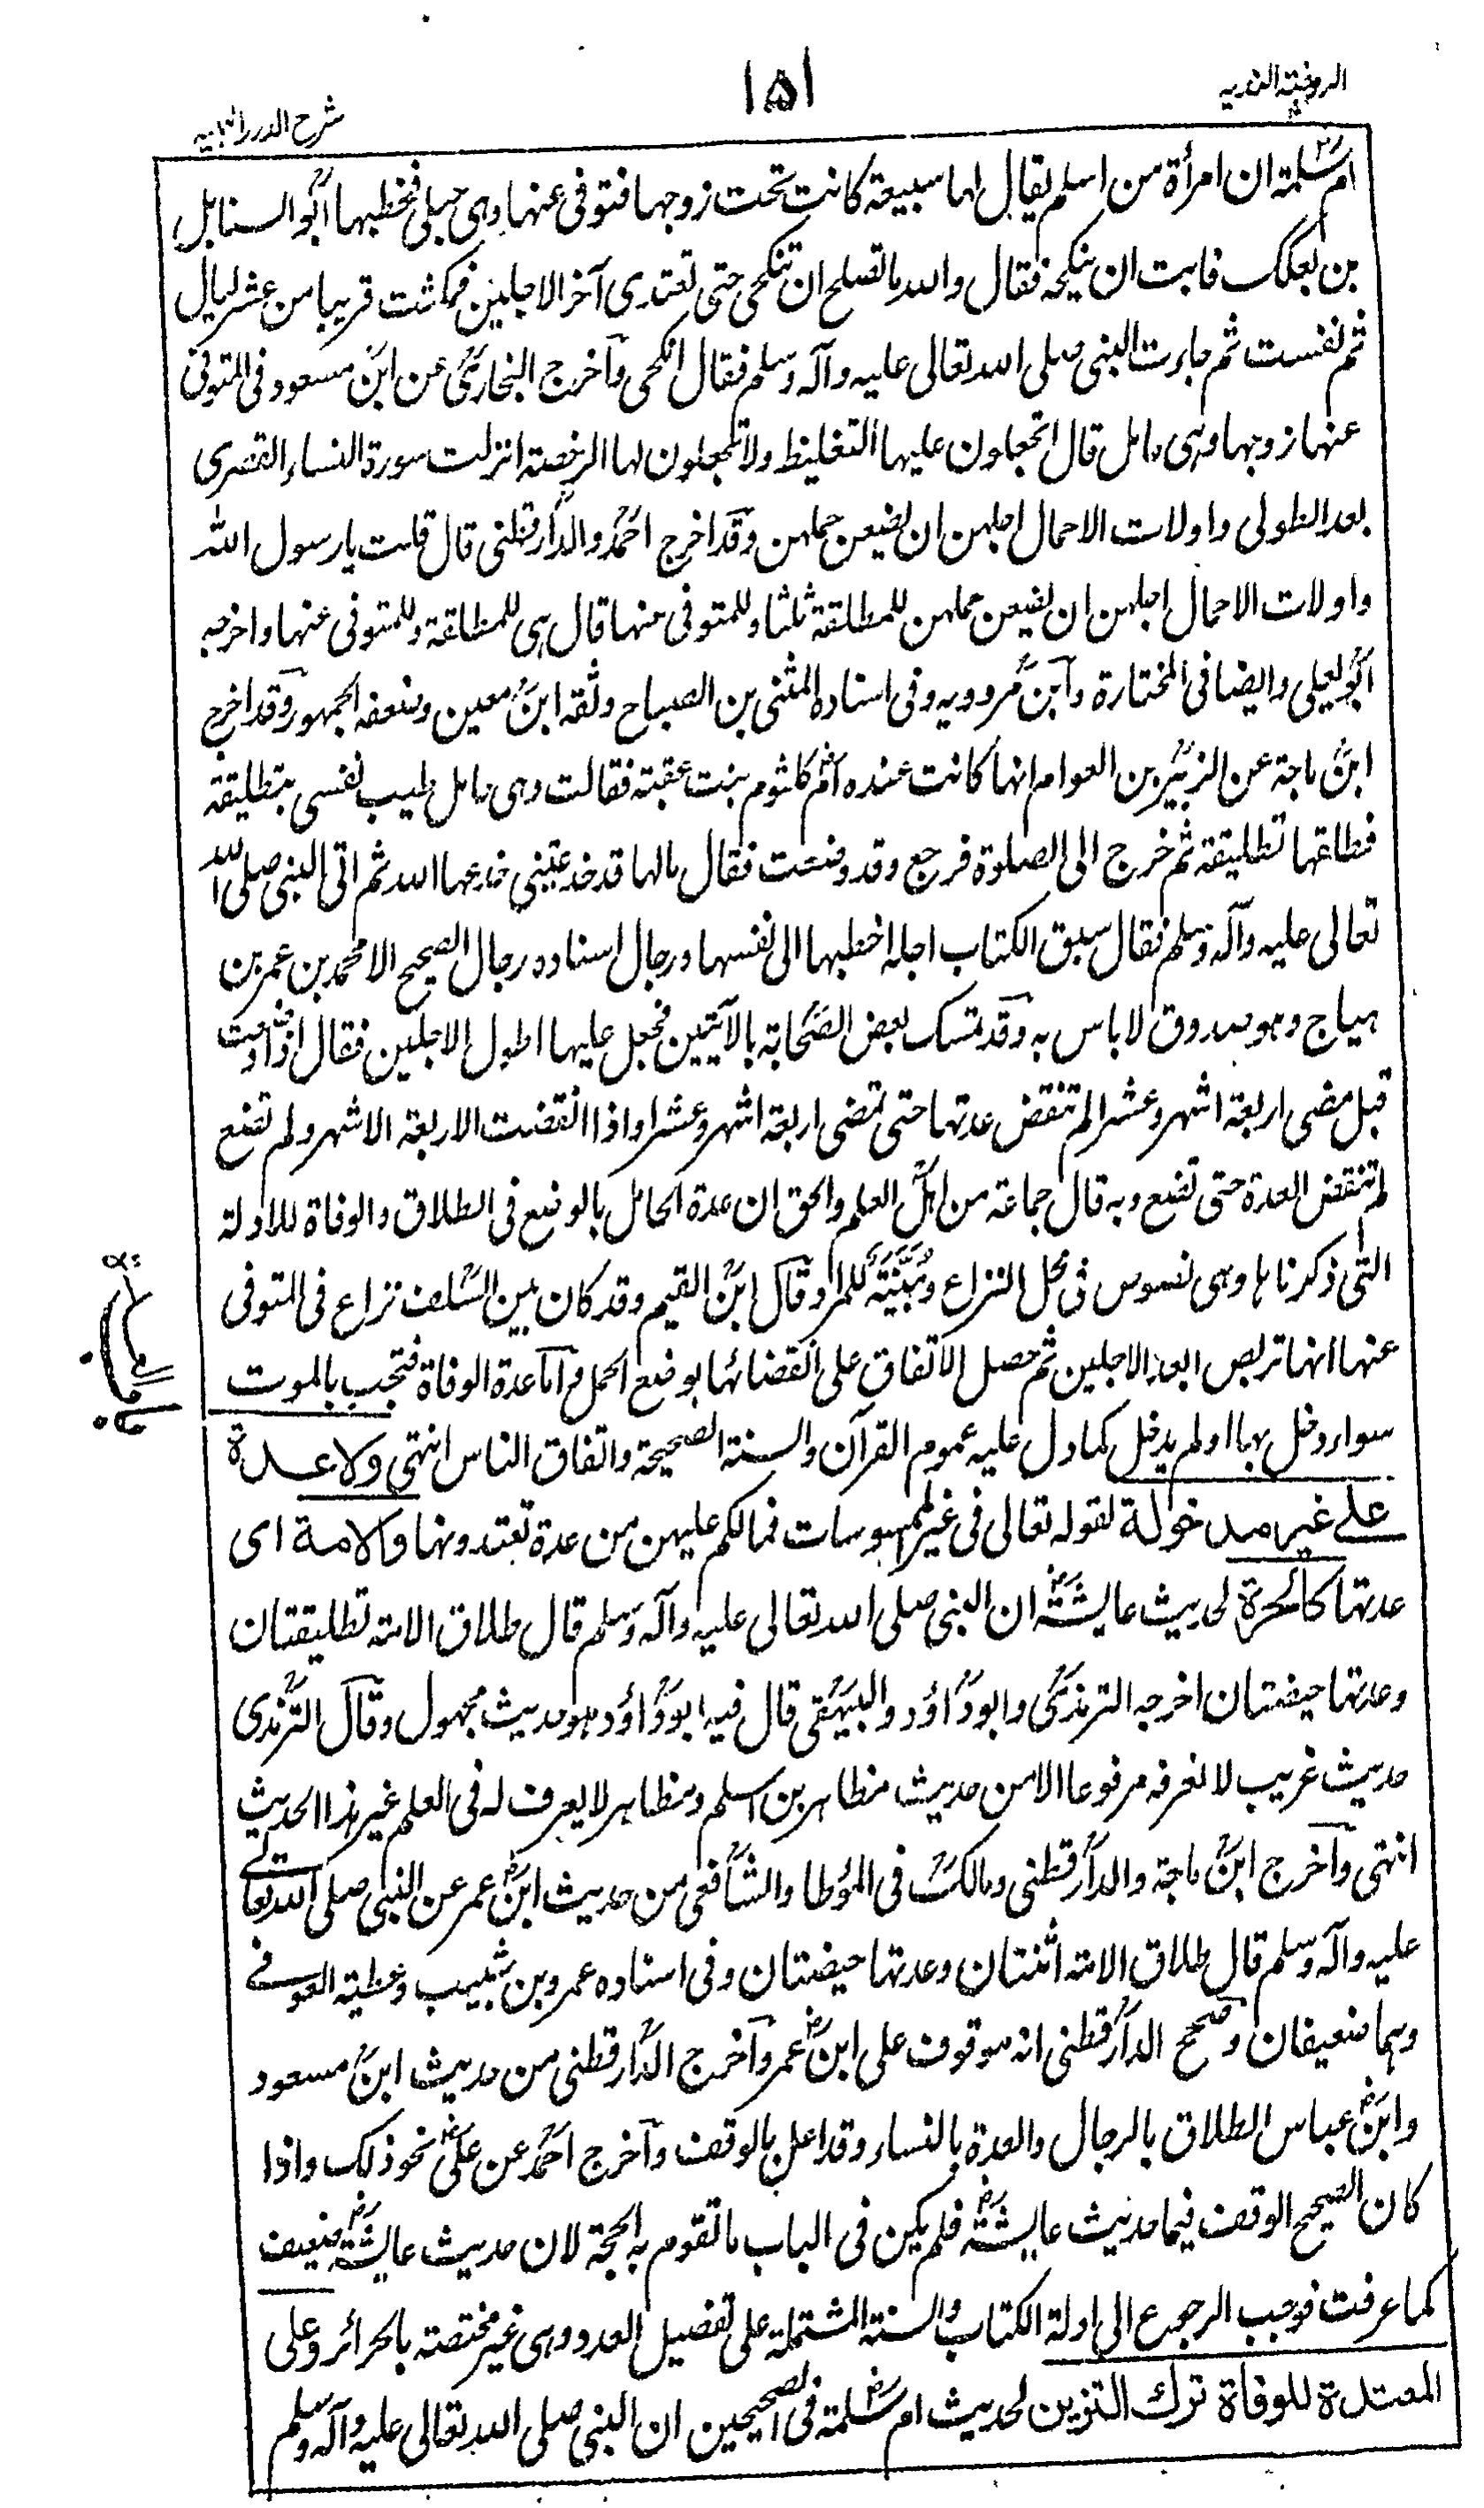 الروضة الندیه
۱۵۱
شرح الدرر البهیه
ام سلمة ان امرأة من اسلم یقال لها سبیعة کانت تحت زوجها فتوفی عنها وهی حبلی فخطبها ابو السنابل
بن بعکک فابت ان ینکحه فقال والله ما تصلح ان تنکحی حتی تعتدی آخر الاجلین فمکثت قریبا من عشر لیال
ثم نفست ثم جاءت النبی صلی الله تعالی علیه وآله وسلم فقال انکحی وآخرج البخاری عن ابن مسعود فی المتوفی
عنها زوجها وهی حامل قال اتجعلون علیها التغلیظ ولا تجعلون لها الرخصة انزلت سورة النساء القصری
بعد الطولی واولات الاحمال اجلهن ان یضعن حملهن وقد اخرج احمد والدارقطنی قال قلت یا رسول الله
واولات الاحمال اجلهن ان یضعن حملهن للمطلقة ثلثا وللمتوفی عنها قال هی للمطلقة وللمتوفی عنها واخرجه
ابو یعلی والضیا فی المختارة وابن مردویه وفی اسناده المثنی بن الصباح وثقه ابن معین وضعفه الجمهور وقد اخرج
ابن ماجة عن الزبیر بن العوام انها کانت عنده ام کلثوم بنت عقبة فقالت وهی حامل طیب نفسی بتطلیقة
فطلقها تطلیقة ثم خرج الی الصلوة فرجع وقد وضعت فقال مالها قد خدعتنی خدعها الله ثم اتی النبی صلی الله
تعالی علیه وآله وسلم فقال سبق الکتاب اجله اخطبها الی نفسها ورجال اسناده رجال الصحیح الا محمد بن عمر بن
هیاج وهو صدوق لا باس به وقد تمسک بعض الصحابة بالآیتین فجعل علیها اطول الاجلین فقال اذا وضعت
قبل مضی اربعة اشهر وعشرا لم تنقض عدتها حتی تمضی اربعة اشهر وعشرا واذا انقضت الاربعة الاشهر ولم تضع
لم تنقض العدة حتی تضع وبه قال جماعة من اهل العلم والحق ان عدة الحامل بالوضع فی الطلاق والوفاة للادلة
التی ذکرناها وهی نصوص فی محل النزاع ومبینة للمراد وقال ابن القیم وقد کان بین السلف نزاع فی المتوفی
عنها انها تربص ابعد الاجلین ثم حصل الاتفاق علی انقضائها بوضع الحمل واما عدة الوفاة فتجب بالموت
سواء دخل بها او لم یدخل کما دل علیه عموم القرآن والسنة الصحیحة واتفاق الناس انتهی ولا عدة
علی غیر مدخولة لقوله تعالی فی غیر الممسوسات فما لکم علیهن من عدة تعتدونها والامة ای
عدتها کالحرة لحدیث عایشة ان النبی صلی الله تعالی علیه وآله وسلم قال طلاق الامة تطلیقتان
وعدتها حیضتان اخرجه الترمذی وابو داؤد والبیهقی قال فیه ابو داؤد هو حدیث مجهول وقال الترمذی
حدیث غریب لا نعرفه مرفوعا الا من حدیث مظاهر بن اسلم ومظاهر لا یعرف له فی العلم غیر هذا الحدیث
انتهی وآخرج ابن ماجة والدارقطنی ومالک فی الموطا والشافعی من حدیث ابن عمر عن النبی صلی الله تعالی
علیه وآله وسلم قال طلاق الامة اثنتان وعدتها حیضتان وفی اسناده عمرو بن شبیب وعطیة العوفی
وهما ضعیفان وصحح الدارقطنی انه موقوف علی ابن عمر وآخرج الدارقطنی من حدیث ابن مسعود
وابن عباس الطلاق بالرجال والعدة بالنساء وقد اعل بالوقف وآخرج احمد عن علی نحو ذلک واذا
کان الصحیح الوقف فیما حدیث عایشة فلم یکن فی الباب ما تقوم به الحجة لان حدیث عایشة ضعیف
کما عرفت فوجب الرجوع الی ادلة الکتاب والسنة المشتملة علی تفصیل العدد وهی غیر مختصة بالحرائر وعلی
المعتدة للوفاة ترک التزین لحدیث ام سلمة فی الصحیحین ان النبی صلی الله تعالی علیه وآله وسلم